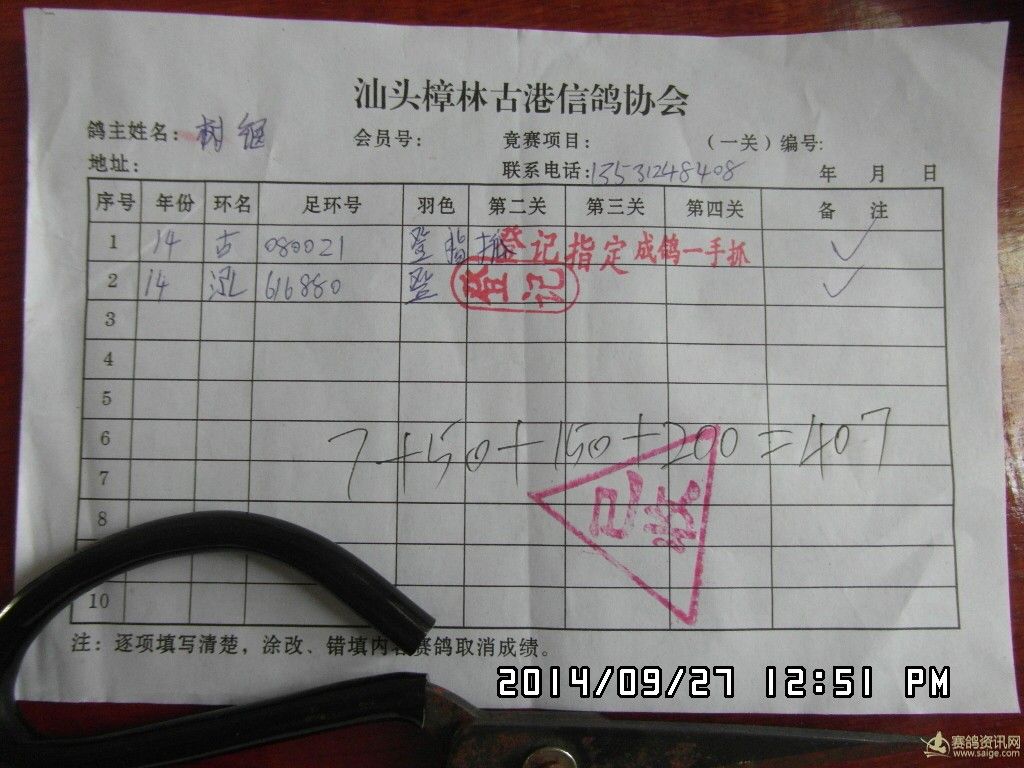 汕头樟林古港信鸽协会
鸽主姓名: 树 会员号: 竟赛项目: （一关）编号:
地址: 联系电话:13531248408 年 月 日
序号 年份 环名 足环号 羽色 第二关 第三关 第四关 备 注
1 14 古 080021 登记指定成鸽一手抓 ✓
2 14 616880 登记 ✓
3
4
5
6
7+50+150+200=407
7
已
8
10
注: 逐项填写清楚, 涂改、错填内容赛鸽取消成绩。
2014/09/27 12:51 PM
赛鸽资讯网
www.saige.com